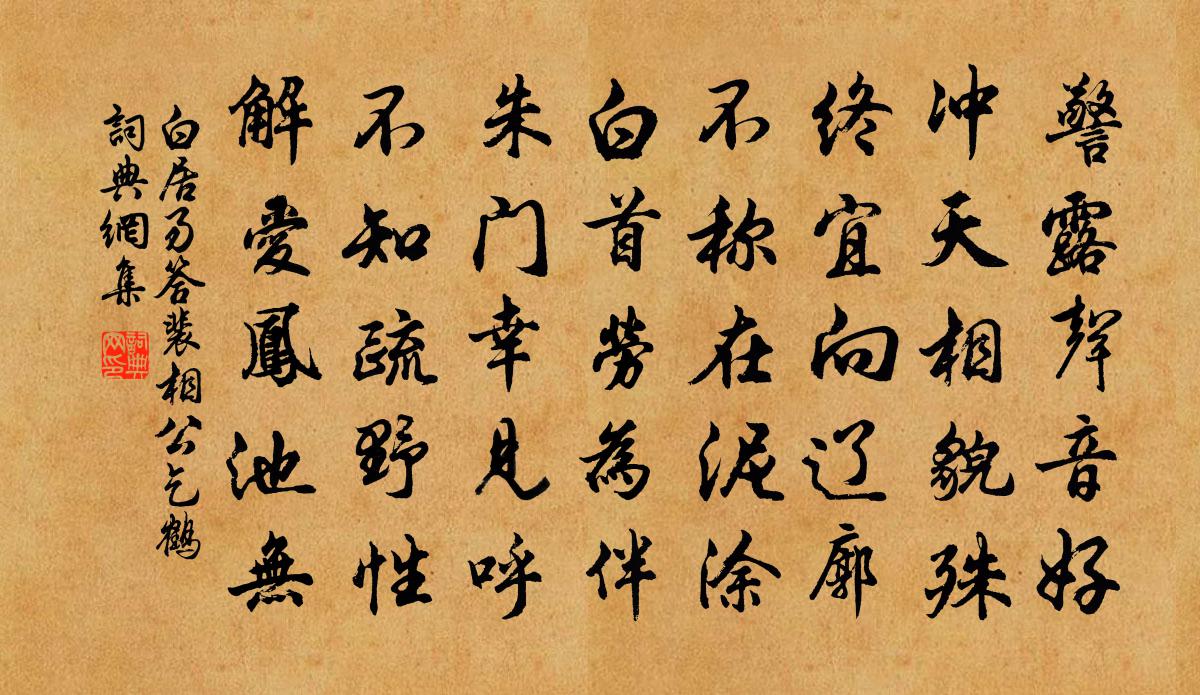 警露聲音好
冲天相貌殊
终宜向辽廓
不称在泥涂
白首勞為伴
朱门幸見呼
不知疏野性
解愛鳳池無
白居易答裴相公乞鶴
詞典網集
詞典网印